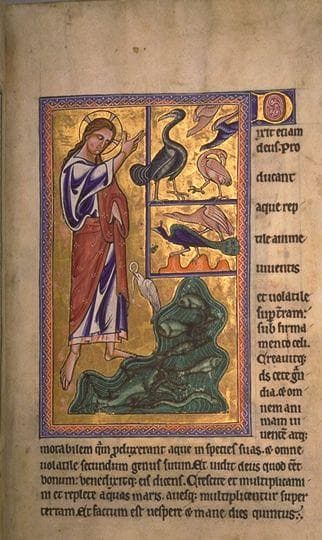 Dixit etiam
deus. Pro
ducant
aque rep
tile anime
uiuentis
et uolatile
sup̄ terram:
sub firma
mento celi.
Creauitq;
ds cete gͣn
dia. ⁊ om
nem ani
mam ui
uentē atq;
motabilem qͣm produxerant aque in species suas. ⁊ omne
uolatile secundum genus suum. Et uidit deus quod eēt
bonum: benedixitq; eis dicens. Crescite et multiplicami
ni et replete aquas maris. auesq; multiplicentur super
terram. Et factum est uespere ⁊ mane dies quintus.